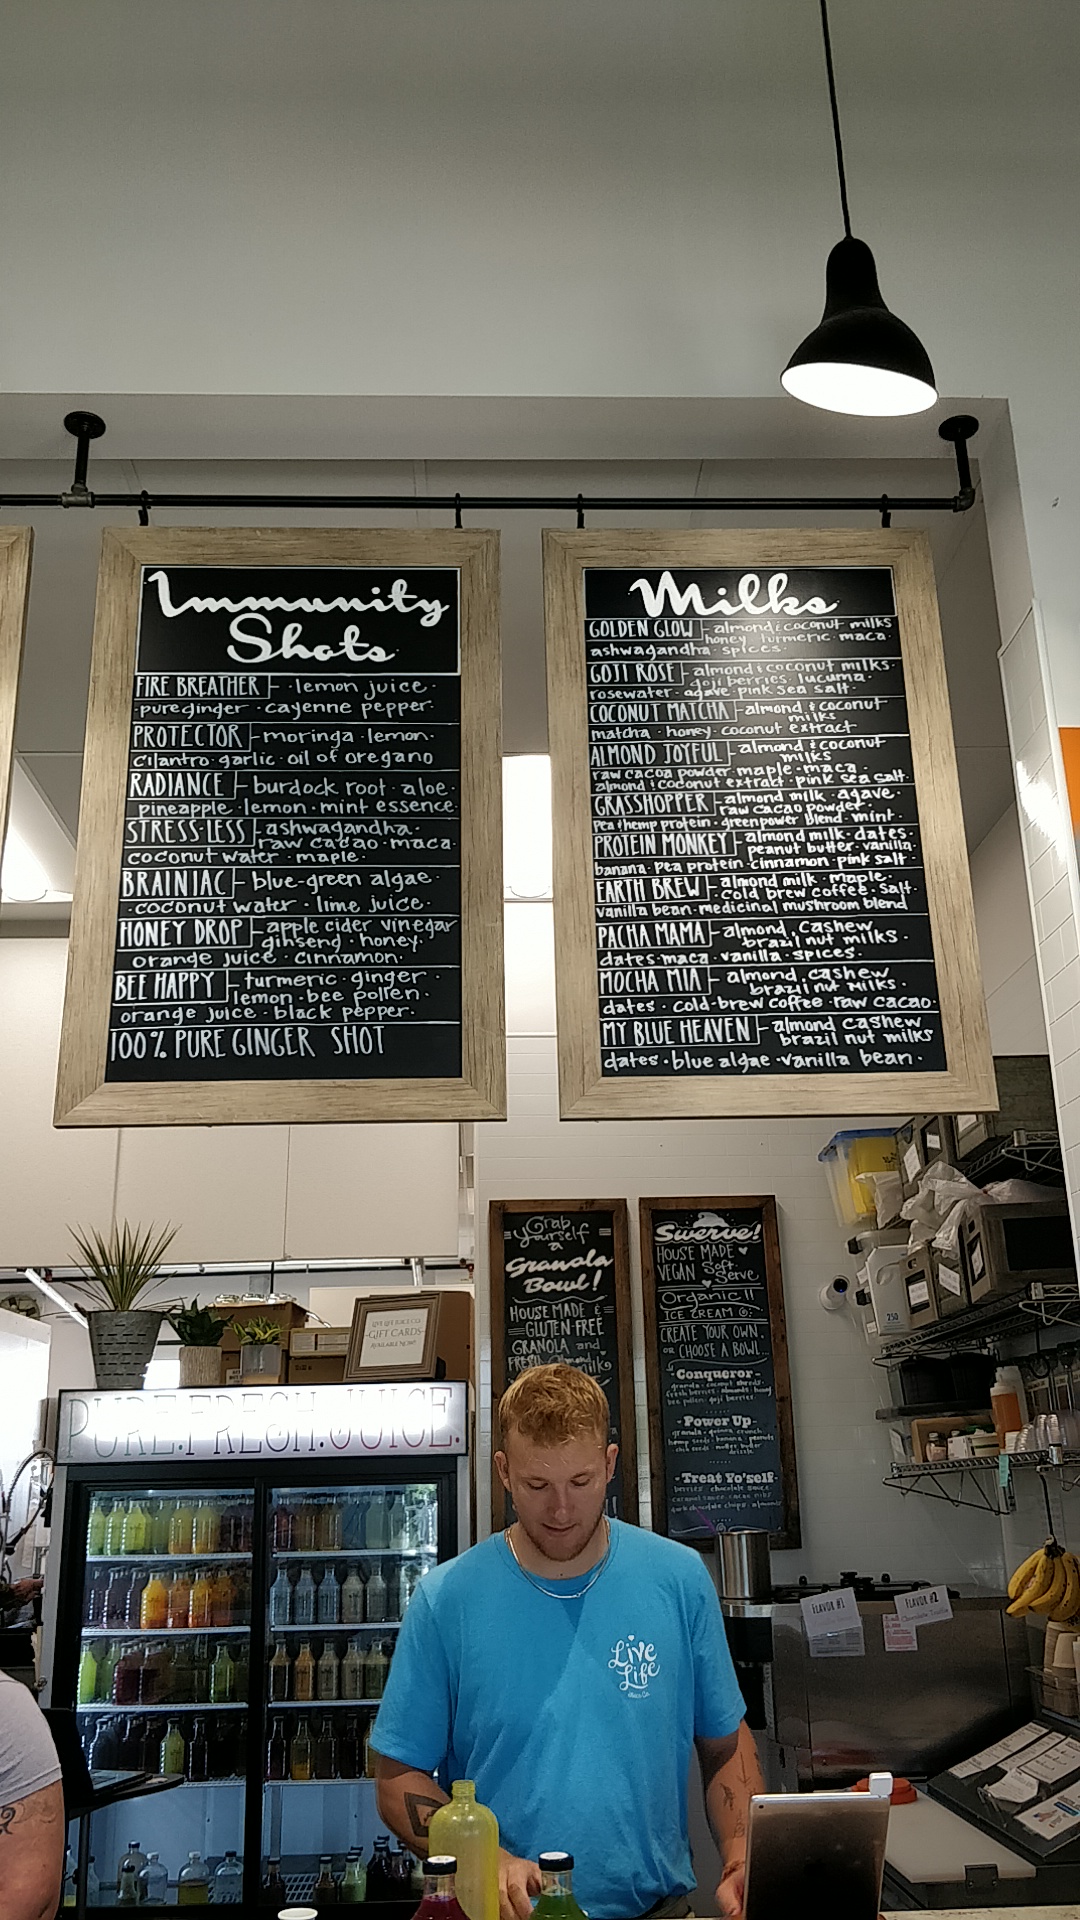 Immunity
Shots
FIRE BREATHER - · lemon juice ·
· pure ginger · cayenne pepper ·
PROTECTOR - moringa · lemon ·
cilantro · garlic · oil of oregano
RADIANCE - burdock root · aloe ·
pineapple · lemon · mint essence ·
STRESS·LESS - ashwagandha ·
raw cacao · maca ·
coconut water · maple ·
BRAINIAC - blue-green algae ·
· coconut water · lime juice ·
HONEY DROP - apple cider vinegar
ginseng · honey ·
orange juice · cinnamon ·
BEE HAPPY - turmeric · ginger ·
lemon · bee pollen ·
orange juice · black pepper ·
100% PURE GINGER SHOT
Milks
GOLDEN GLOW - almond & coconut milks
honey · turmeric · maca ·
ashwagandha · spices ·
GOJI ROSE - almond & coconut milks ·
goji berries · lucuma ·
rosewater · agave · pink sea salt ·
COCONUT MATCHA - almond & coconut
milks
matcha · honey · coconut extract
ALMOND JOYFUL - almond & coconut
milks
raw cacoa powder · maple · maca ·
almond & coconut extract · pink sea salt ·
GRASSHOPPER - almond milk · agave ·
raw cacao powder ·
pea & hemp protein · greenpower blend · mint ·
PROTEIN MONKEY - almond milk · dates ·
peanut butter · vanilla
banana · pea protein · cinnamon · pink salt ·
EARTH BREW - almond milk · maple ·
cold brew coffee · salt ·
vanilla bean · medicinal mushroom blend
PACHA MAMA - almond, cashew
brazil nut milks ·
dates · maca · vanilla · spices ·
MOCHA MIA - almond, cashew
brazil nut milks ·
dates · cold-brew coffee · raw cacao ·
MY BLUE HEAVEN - almond cashew
brazil nut milks
dates · blue algae · vanilla bean ·
Grab
yourself
a
Granola
Bowl!
HOUSE MADE &
GLUTEN FREE
GRANOLA and
Swerve!
HOUSE MADE
VEGAN Soft
Serve
Organic!!
ICE CREAM
CREATE YOUR OWN
OR CHOOSE A BOWL...
- Conqueror -
- Power Up -
- Treat Yo'self -
berries · chocolate sauce ·
dark chocolate chips · almonds
LIVE LIFE JUICE CO.
-GIFT CARDS-
AVAILABLE NOW!
PURE.FRESH.JUICE.
Live
Life
Juice Co.
FLAVOR #1
FLAVOR #2
250